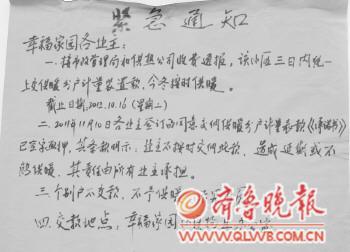 紧急通知
幸福家园各业主:
一、接市政管理局和供热公司收费通报,该小区三日内统一
上交供暖分户计量装置款,今冬按时供暖。
截止日期,2012.10.16(星期二)
二、2011年11月10日各业主签订的同意交纳供暖分户计量表款《承诺书》
已签字画押,其条款明示:业主不按时交付此款,造成延期或不
能供暖,其责任由所有业主承担。
三、个别户不交款,不予供暖
四、交款地点:幸福家园
齐鲁晚报
WWW.QLWB.COM.CN